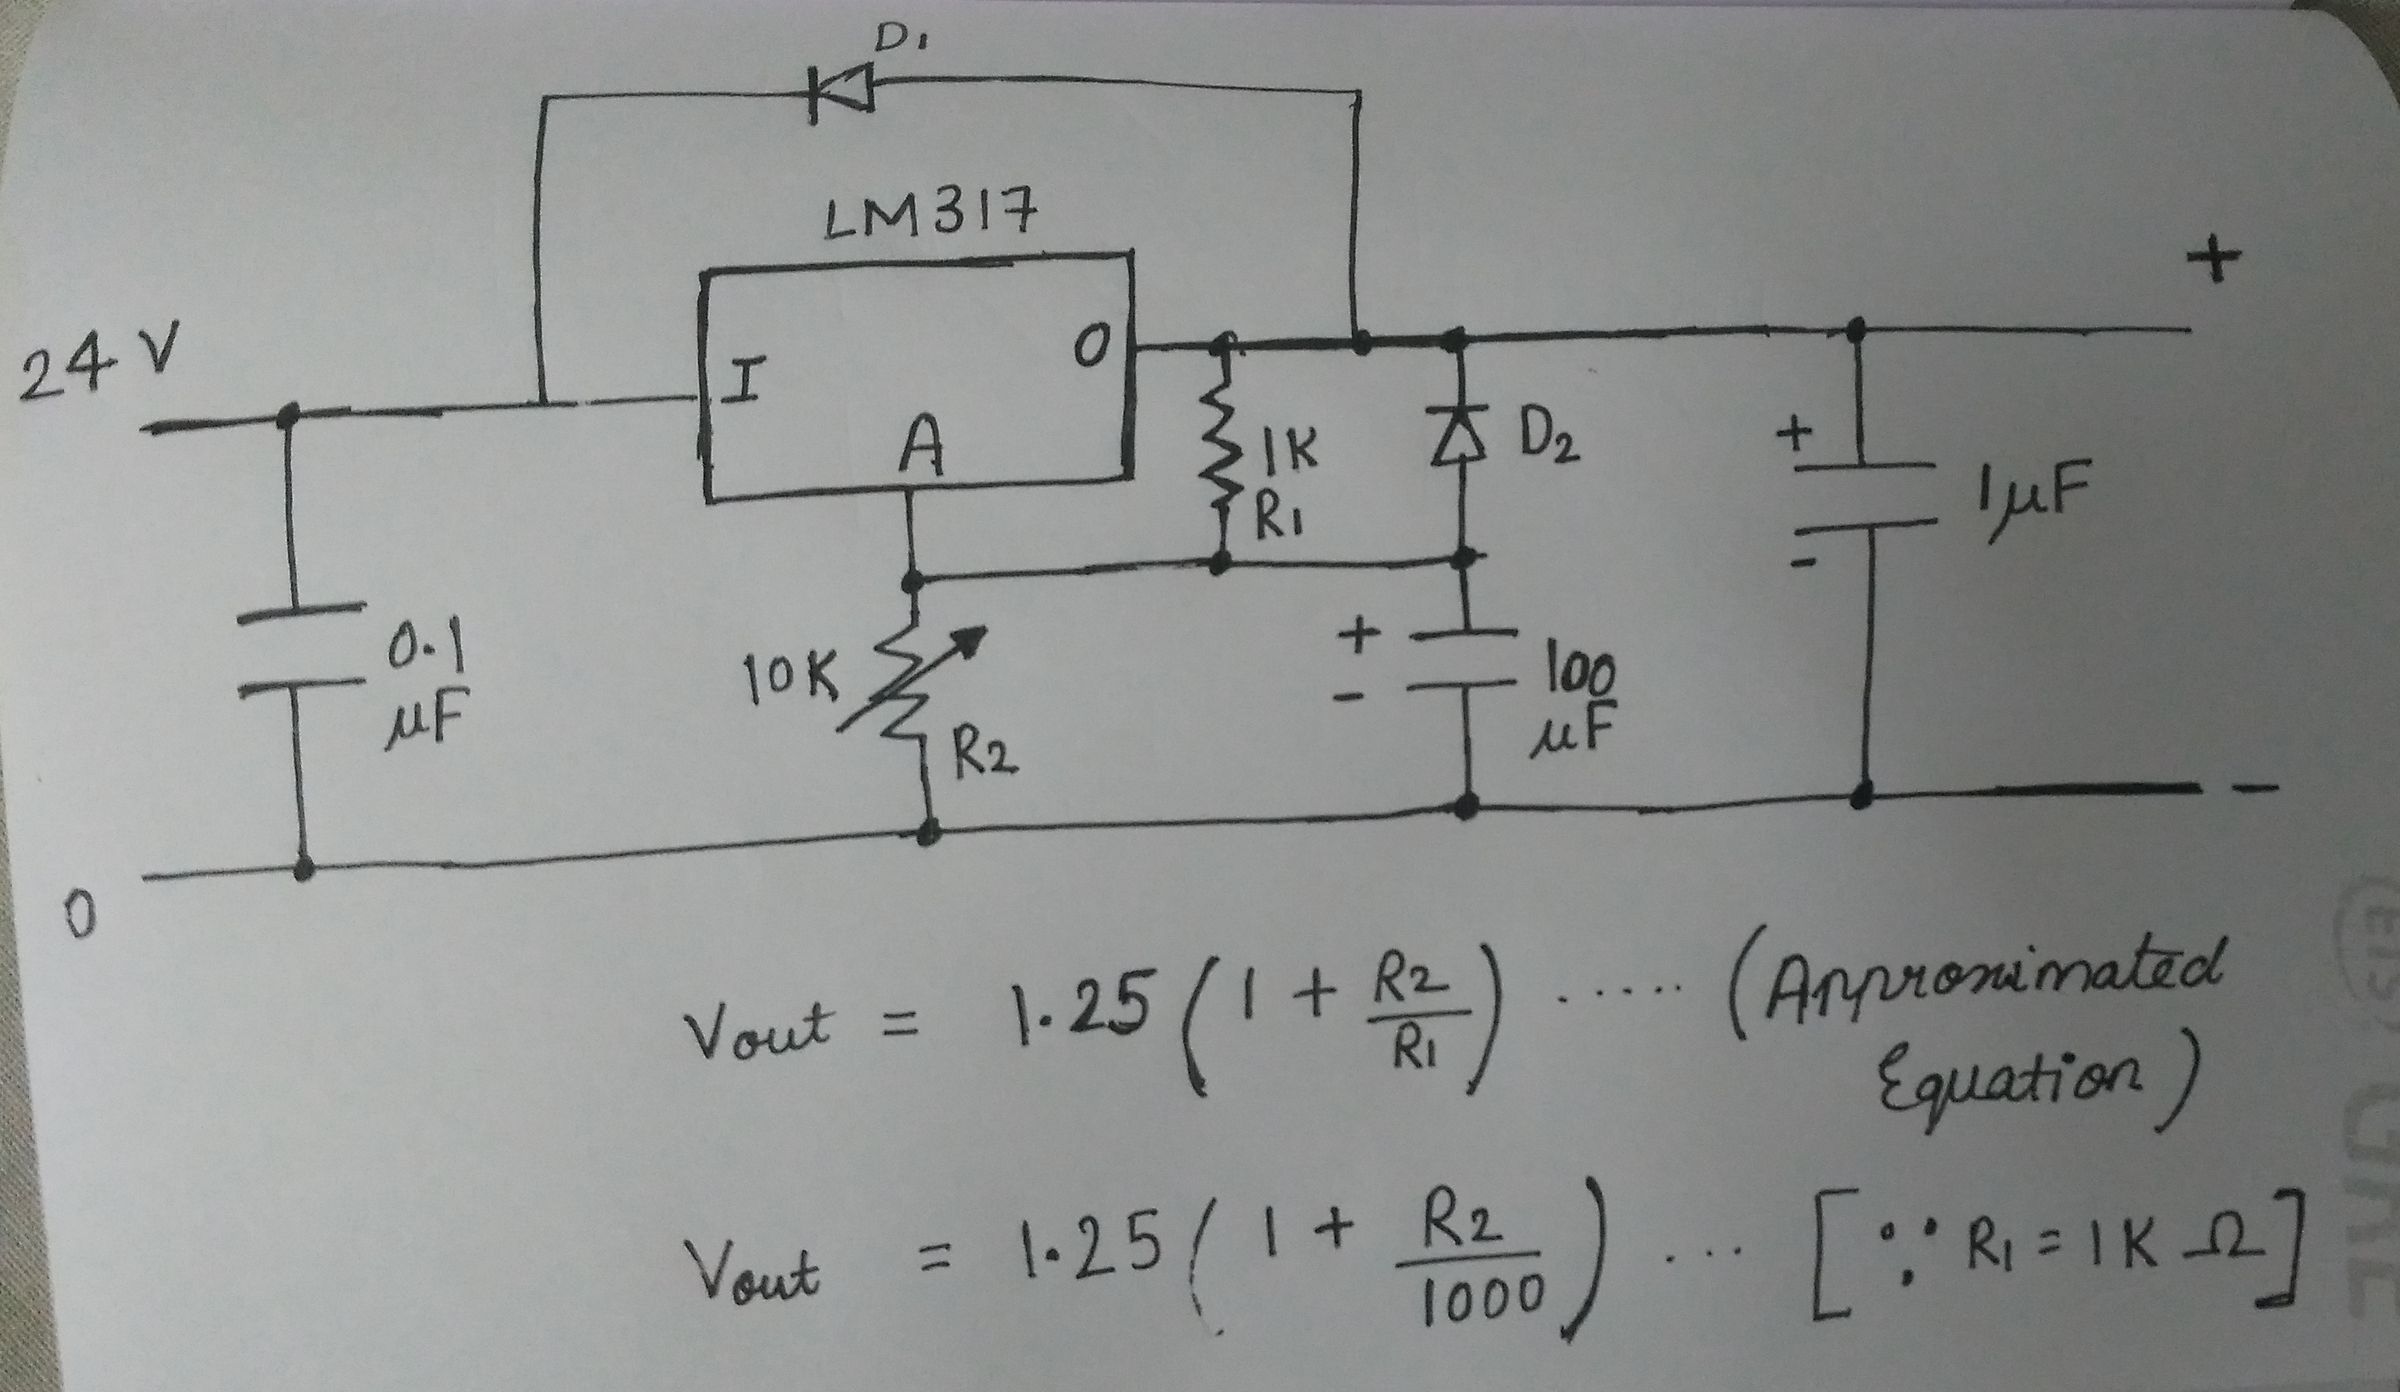 D1
LM317
24 V
I
O
A
+
1K
R1
D2
+
-
1μF
0.1
μF
10K
R2
+
-
100
μF
-
0
Vout = 1.25 ( 1 + R2/R1 ) ..... (Approximated
Equation)
Vout = 1.25 ( 1 + R2/1000 ) ... [ ∵ R1 = 1K Ω ]